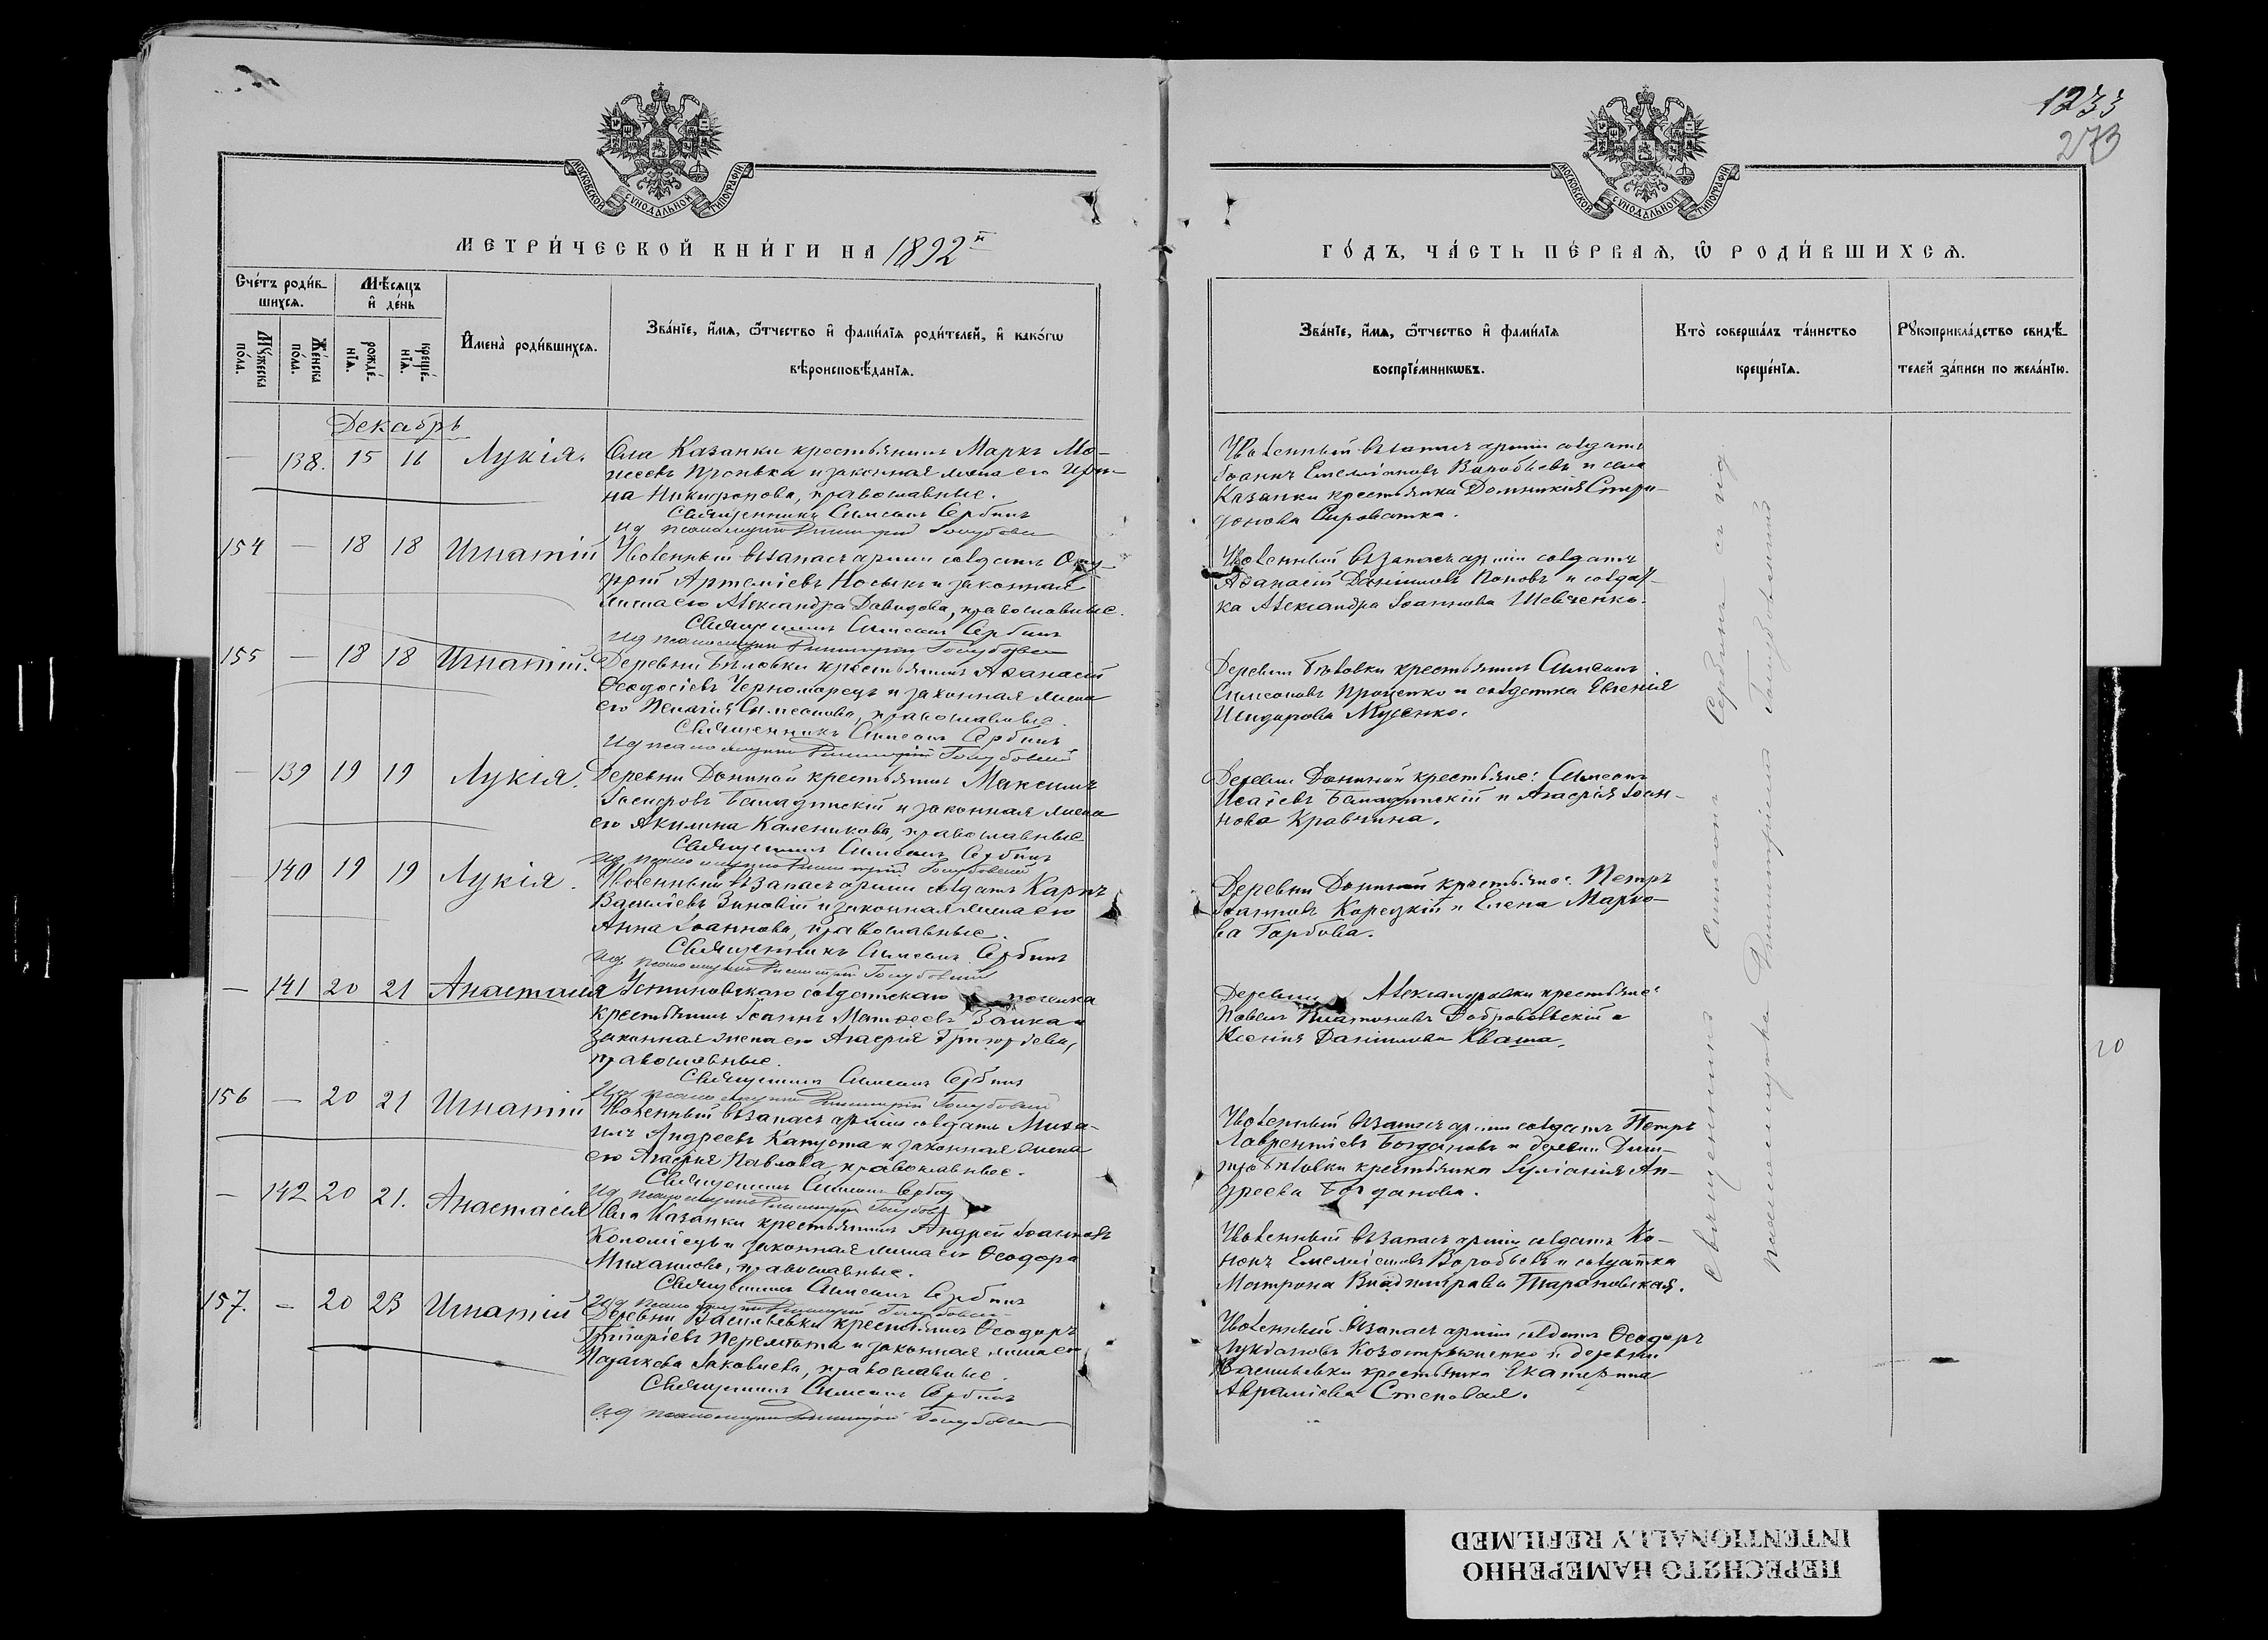 1233
273
МОСКОВСКОЙ СѴНОДАЛЬНОЙ ТИПОГРАФІИ
МЕТРИ́ЧЕСКОЙ КНИ́ГИ НА 1892й
Сче́тъ роди́в-
шихсѧ.
Мѣ́сяцъ
и҆ де́нь
Мꙋ́жеска
по́ла.
Же́нска
по́ла.
рожде́-
нїѧ.
креще́-
нїѧ.
И҆мена̀ роди́вшихсѧ.
Зва́нїе, и҆́мѧ, ѻ҆́тчество и҆ фами́лїѧ роди́телей, и҆ како́гѡ
вѣроисповѣ́данїѧ.
Декабрь
— 138. 15 16 Лукія. Села Казанки крестьянинъ Маркъ Мо-
исеевъ Пронька и законная жена его Ири-
на Никифорова, православные.
Священникъ Симеонъ Сербинъ
ид псаломщика Димитрій Голубовскій
154 — 18 18 Игнатій Уволенный въ запасъ арміи солдатъ
Артеміевъ Носыкъ и законная
жена его Александра Давидова, православные.
Священникъ Симеонъ Сербинъ
ид псаломщика Димитрій Голубовскій
155 — 18 18 Игнатій. Деревни Бѣловки крестьянинъ Аѳанасій
Ѳеодосіевъ Черноморецъ и законная жена
его Пелагія Симеонова, православные.
Священникъ Симеонъ Сербинъ
ид псаломщика Димитрій Голубовскій
— 139 19 19 Лукія. Деревни Дониной крестьянинъ Максимъ
Іосифовъ и законная жена
его Акилина Каленикова, православные
Священникъ Симеонъ Сербинъ
ид псаломщика Димитрій Голубовскій
— 140 19 19 Лукія. Уволенный въ запасъ арміи солдатъ Карпъ
Василіевъ Зиновій и законная жена его
Анна Іоаннова, православные.
Священникъ Симеонъ Сербинъ
ид псаломщика Димитрій Голубовскій
— 141 20 21 Анастасія Устиновскаго солдатскаго поселка
крестьянинъ Іоаннъ Матѳеевъ Заика и
законная жена его Агаѳія Григорьева,
православные.
Священникъ Симеонъ Сербинъ
ид псаломщика Димитрій Голубовскій
156 — 20 21 Игнатій Уволенный въ запасъ арміи солдатъ Миха-
илъ Андреевъ Капуста и законная жена
его Агаѳія Павлова, православные.
Священникъ Симеонъ Сербинъ
ид псаломщика Димитрій Голубовскій
— 142 20 21. Анастасія Села Казанки крестьянинъ Андрей Іоанновъ
Коломіецъ и законная жена его Ѳеодора
Михаилова, православные.
Священникъ Симеонъ Сербинъ
ид псаломщика Димитрій Голубовскій
157. — 20 23 Игнатій Деревни Васильевки крестьянинъ Ѳеодоръ
Григоріевъ Перемѣта и законная жена его
Іаковлева, православные.
Священникъ Симеонъ Сербинъ
ид псаломщика Димитрій Голубовскій
МОСКОВСКОЙ СѴНОДАЛЬНОЙ ТИПОГРАФІИ
ГО́ДЪ, ЧА́СТЬ ПЕ́РВАѦ, Ѡ҆ РОДИ́ВШИХСѦ.
Зва́нїе, и҆́мѧ, ѻ҆́тчество и҆ фами́лїѧ
воспрїе́мникѡвъ.
Кто̀ соверша́лъ та́инство
креще́нїѧ.
Рꙋкоприкла́дство свидѣ́-
телей за́писи по жела́нїю.
Уволенный въ запасъ арміи солдатъ
Іоаннъ Емеліановъ Воробьевъ и села
Казанки крестьянка Домникія Спири-
донова Сироватка.
Уволенный въ запасъ арміи солдатъ
Аѳанасій Даніиловъ Поповъ и солдат-
ка Александра Іоаннова Шевченко.
Деревни Бѣловки крестьянинъ Симеонъ
Симеоновъ Проценко и солдатка Евгенія
Исидорова Мусенко.
Деревни Дониной крестьяне: Симеонъ
Исаіевъ и Агаѳія Іоан-
нова Кравчина.
Деревни Дониной крестьяне: Петръ
Іоанновъ Корецкій и Елена Марко-
ва Горбова.
Деревни Александровки крестьяне:
Павелъ Платоновъ Добровольскій и
Ксенія Даніилова Кваша.
Уволенный въ запасъ арміи солдатъ Петръ
Лаврентіевъ Богдановъ и деревни Дмит-
ро Бѣловки крестьянка Іуліанія Ан-
дреева Богданова.
Уволенный въ запасъ арміи солдатъ Ко-
нонъ Емеліановъ Воробьевъ и солдатка
Матрона Владимірова Тарановская.
Уволенный въ запасъ арміи солдатъ Ѳеодоръ
Лукіановъ и деревни
Васильевки крестьянка Екатерина
Авраміева Степовая.
Священникъ Симеонъ Сербинъ съ ид
псаломщика Димитріемъ Голубовскимъ
20
ПЕРЕСНЯТО НАМЕРЕННО
INTENTIONALLY REFILMED